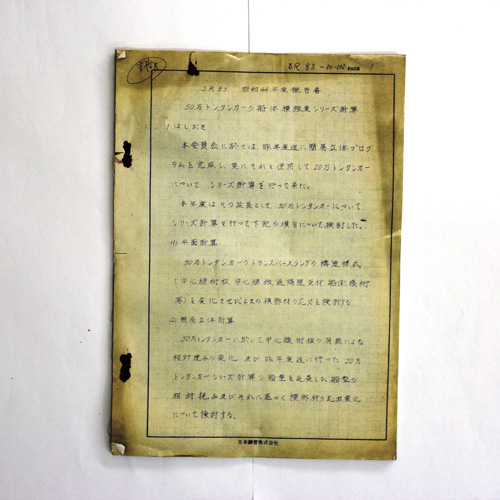 SR 83 -20-202 PAGE 1
SR83 昭和44年度報告書
50万トンタンカーの船体横強度シリーズ計算
1 はしがき
本会員会に於ては、昨年度迄に簡易立体プログ
ラムを完成し、更にそれを使用して20万トンタンカー
について シリーズ計算を行って来た。
本年度はその延長として、50万トンタンカーについて
シリーズ計算を行って下記の項目について検討した。
(1) 平面計算
50万トンタンカーのトランスバースリングの構造様式
(中心線桁板 中心線縦通隔壁 支材 船側横桁
等)を変化させたときの横部材の応力を検討する
(2) 簡易立体計算
50万トンタンカーに於いて中心線桁板の荷重による
相対撓みの変化、及び昨年度迄に行った 20万
トンタンカーシリーズ計算の船型を延長した船型の
相対撓み及びそれに基づく横部材の応力変化
について検討する。
日本鋼管株式会社